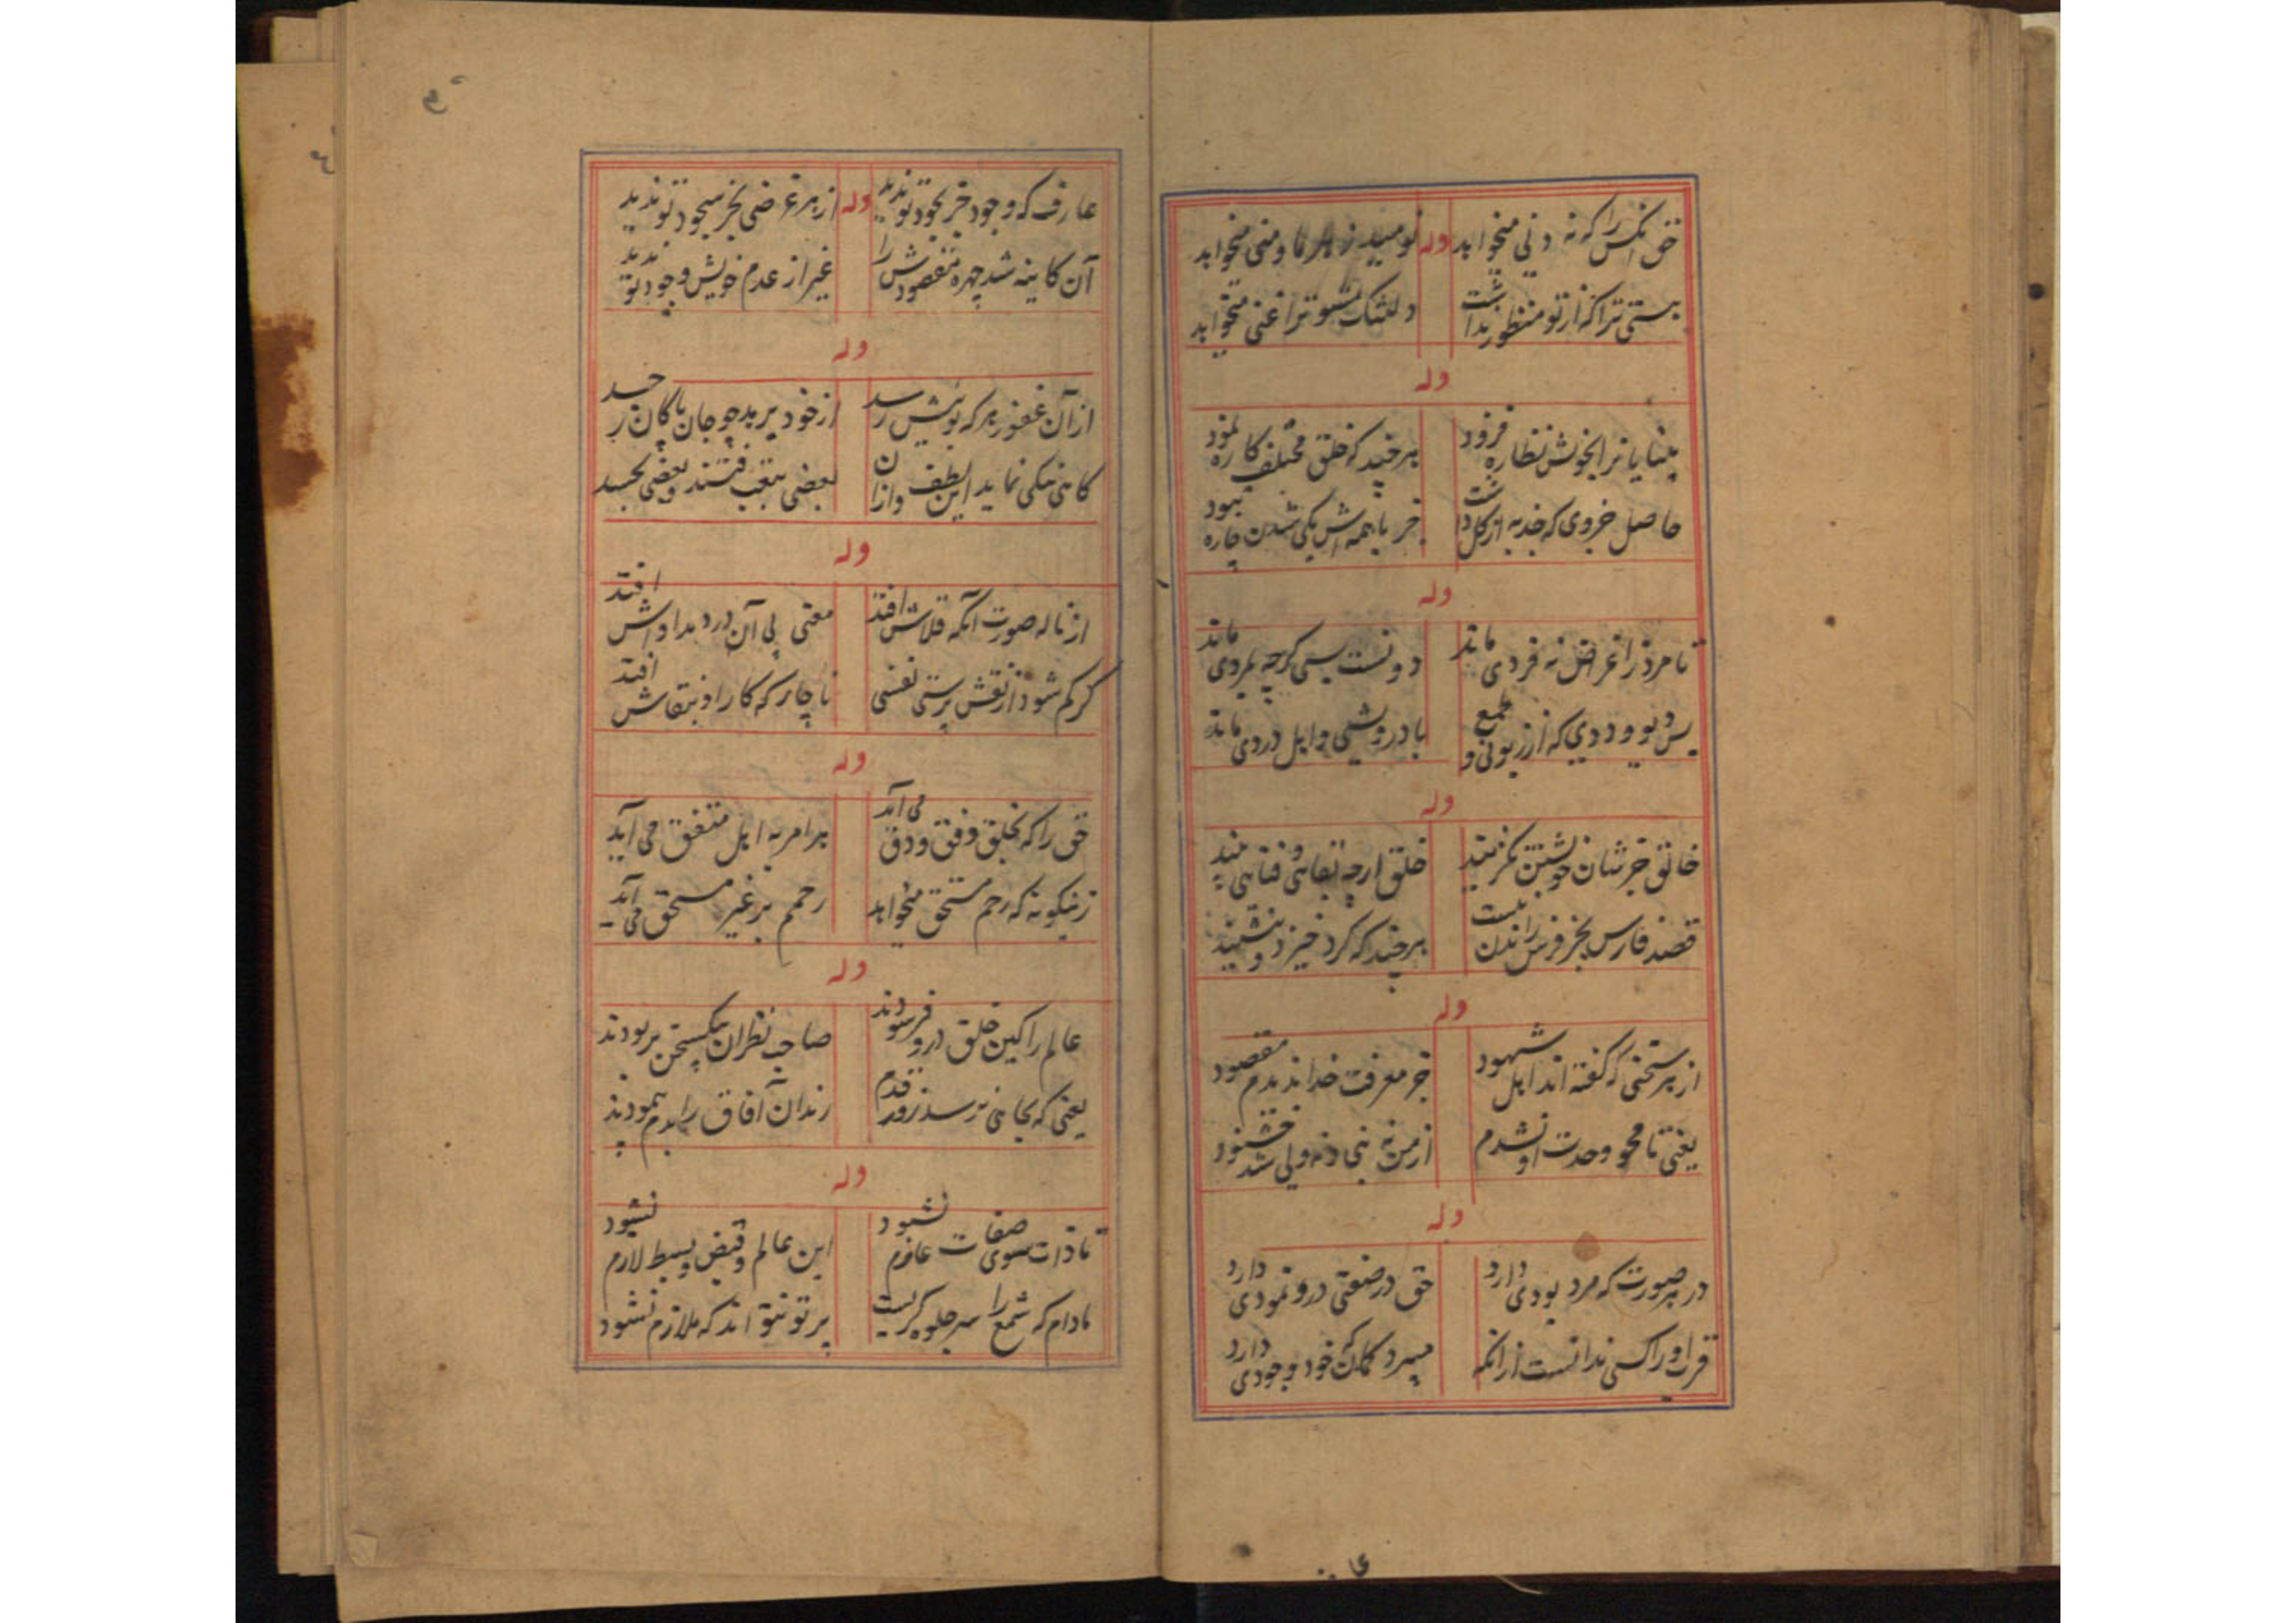 حق آنکس را که نه دنی میخواهد وله نومید ز هر ما و منی میخواهد
پستی ترا که از تو منظور نداشت دلتنگ مشو ترا غنی میخواهد
وله
بینا یا نرا بخودش نظاره فزود هر چند که خلق مختلف کاره نمود
حاصل جزوی که جذبه از کل داشت جز با همه اش یکی شدن چاره نبود
وله
تا مرد ز اغراض نه فردی ماند دونست بسی گرچه بمردی ماند
بس دیو و ددی که از زبونی و طمع با درویشی و اهل دردی ماند
وله
خالق جز شان خویشتن نگزیند خلق ارچه بقایی و فنایی بیند
قصد فارس بجز فرس راندن نیست هر چند که گرد خیزد و بنشیند
وله
از هر سخنی که گفته اند اهل شهود جز معرفت خدا ندیدم مقصود
یعنی تا محو وحدت او نشدم از من نه نبی و نه ولی شد خشنود
وله
در هر صورت که مرد بودی دارد حق در صنعتی درو نمودی دارد
قرب او را کسی ندانست ازانکه میبرد گمان که خود وجودی دارد
عا
عارف که وجود جز بجود تو ندید وله از هر غرضی بجز سجود تو ندید
آن کاینه شد چهره مقصودش را غیر از عدم خویش وجود تو ندید
وله
ازان غفور هر که بوئیش رسد از خود برید چو جان پاکان ز جسد
کاهی نیکی نماید این لطف و ازان بعضی بتعب فتند و بعضی بحسد
وله
از ناله صورت آنکه قلاش افتد معنی پی آن درد بداواش افتد
گر گم شود از نقش پرستی نفسی ناچار که کار او بنقاش افتد
وله
حق را که بخلق وفق و دق می آید بر امر به اهل متفق می آید
زینگونه که رحم مستحق میخواهد رحمم بر غیر مستحق می آید
وله
عالم را کین خلق درو فرسودند صاحب نظران بیک سخن بربودند
یعنی که بجایی نرسد زور قدم رندان آفاق را بدم پیمودند
وله
تا ذات سوی صفات عازم نشود این عالم و قبض و بسط لازم نشود
مادام که شمع را سر جلوه گریست پرتو نتواند که ملازم نشود